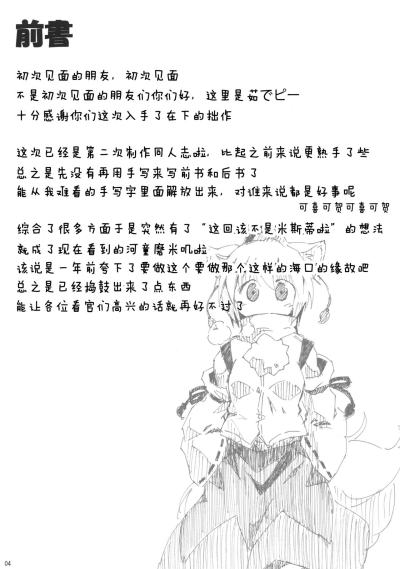 前書
初次见面的朋友，初次见面
不是初次见面的朋友们你们好，这里是茹でピー
十分感谢你们这次入手了在下的拙作
这次已经是第二次制作同人志啦，比起之前来说更熟手了些
总之是先没有再用手写来写前书和后书了
能从我难看的手写字里面解放出来，对谁来说都是好事呢
可喜可贺可喜可贺
综合了很多方面于是突然有了“这回该不是米斯蒂啦”的想法
就成了现在看到的河童磨米叽啦
该说是一年前夸下了要做这个要做那个这样的海口的缘故吧
总之是已经捣鼓出来了点东西
能让各位看官们高兴的话就再好不过了
04